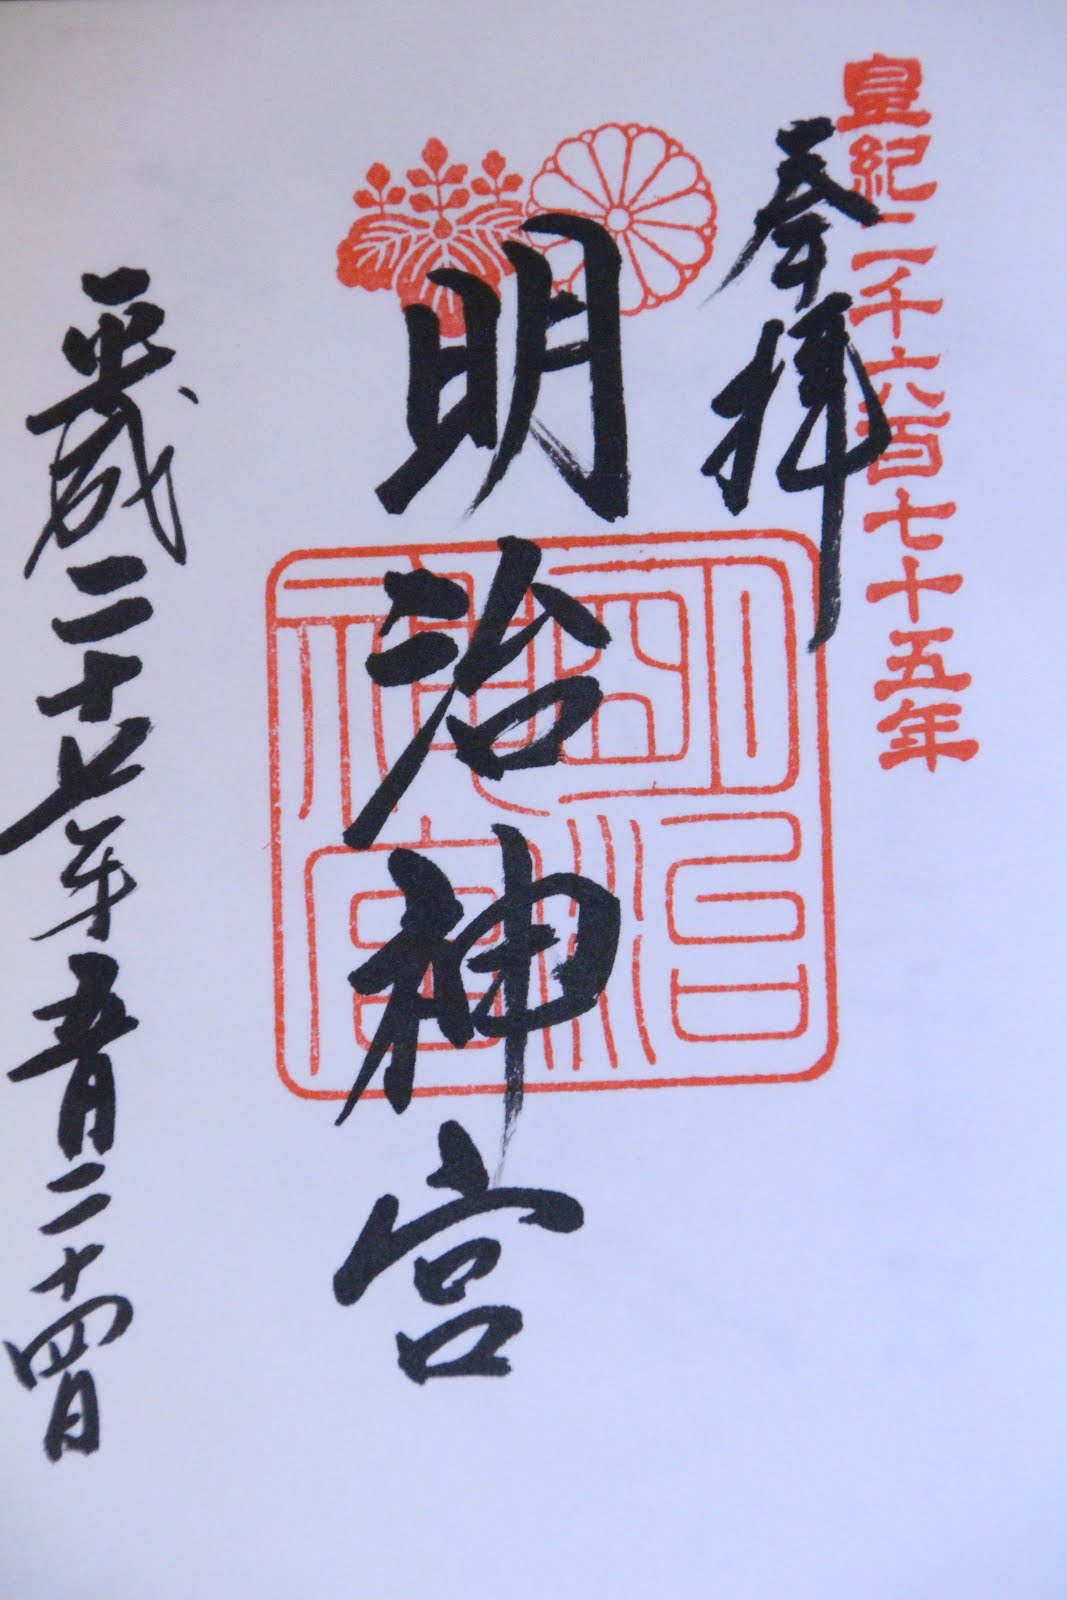 皇紀二千六百七十五年
奉拝
明治神宮
明治神宮
平成二十七年五月二十四日